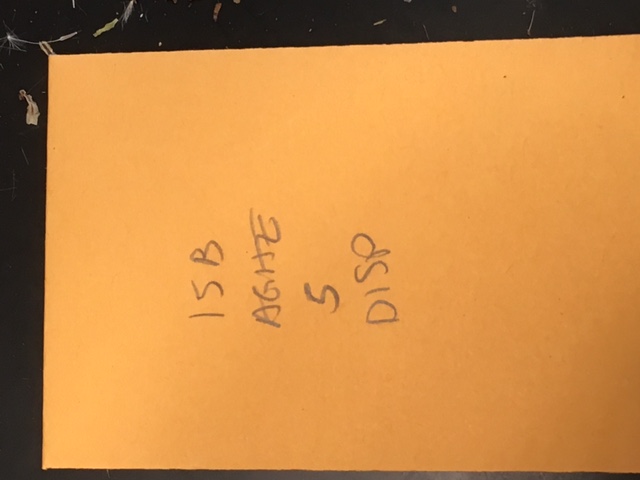 15B
AGHE
5
DISP